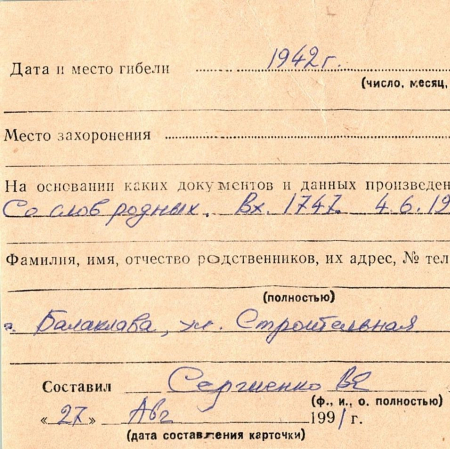 Дата и место гибели 1942 г.
(число, месяц,
Место захоронения
На основании каких документов и данных произведен
Со слов родных. Вх. 1747. 4.6.19
Фамилия, имя, отчество родственников, их адрес, № тел
(полностью)
г. Балаклава, ул. Строительная
Составил Сергиенко
(ф., и., о. полностью)
«27» Авг 1991 г.
(дата составления карточки)